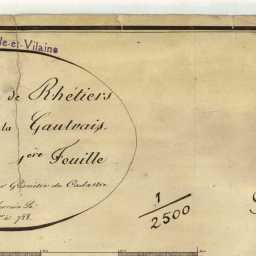 le-et-Vilaine
de Rhétiers
la Gautrais.
1ère Feuille
Géomètre du Cadastre
1/2500